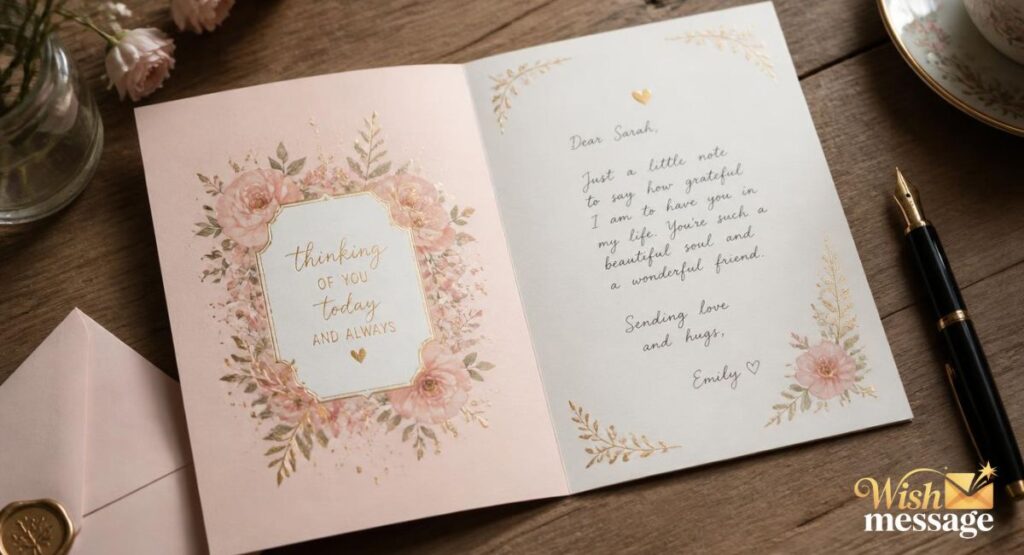 thinking
OF YOU
today
AND ALWAYS
Dear Sarah,
Just a little note
to say how grateful
I am to have you in
my life. You're such a
beautiful soul and
a wonderful friend.
Sending love
and hugs,
Emily ♡
Wish
message